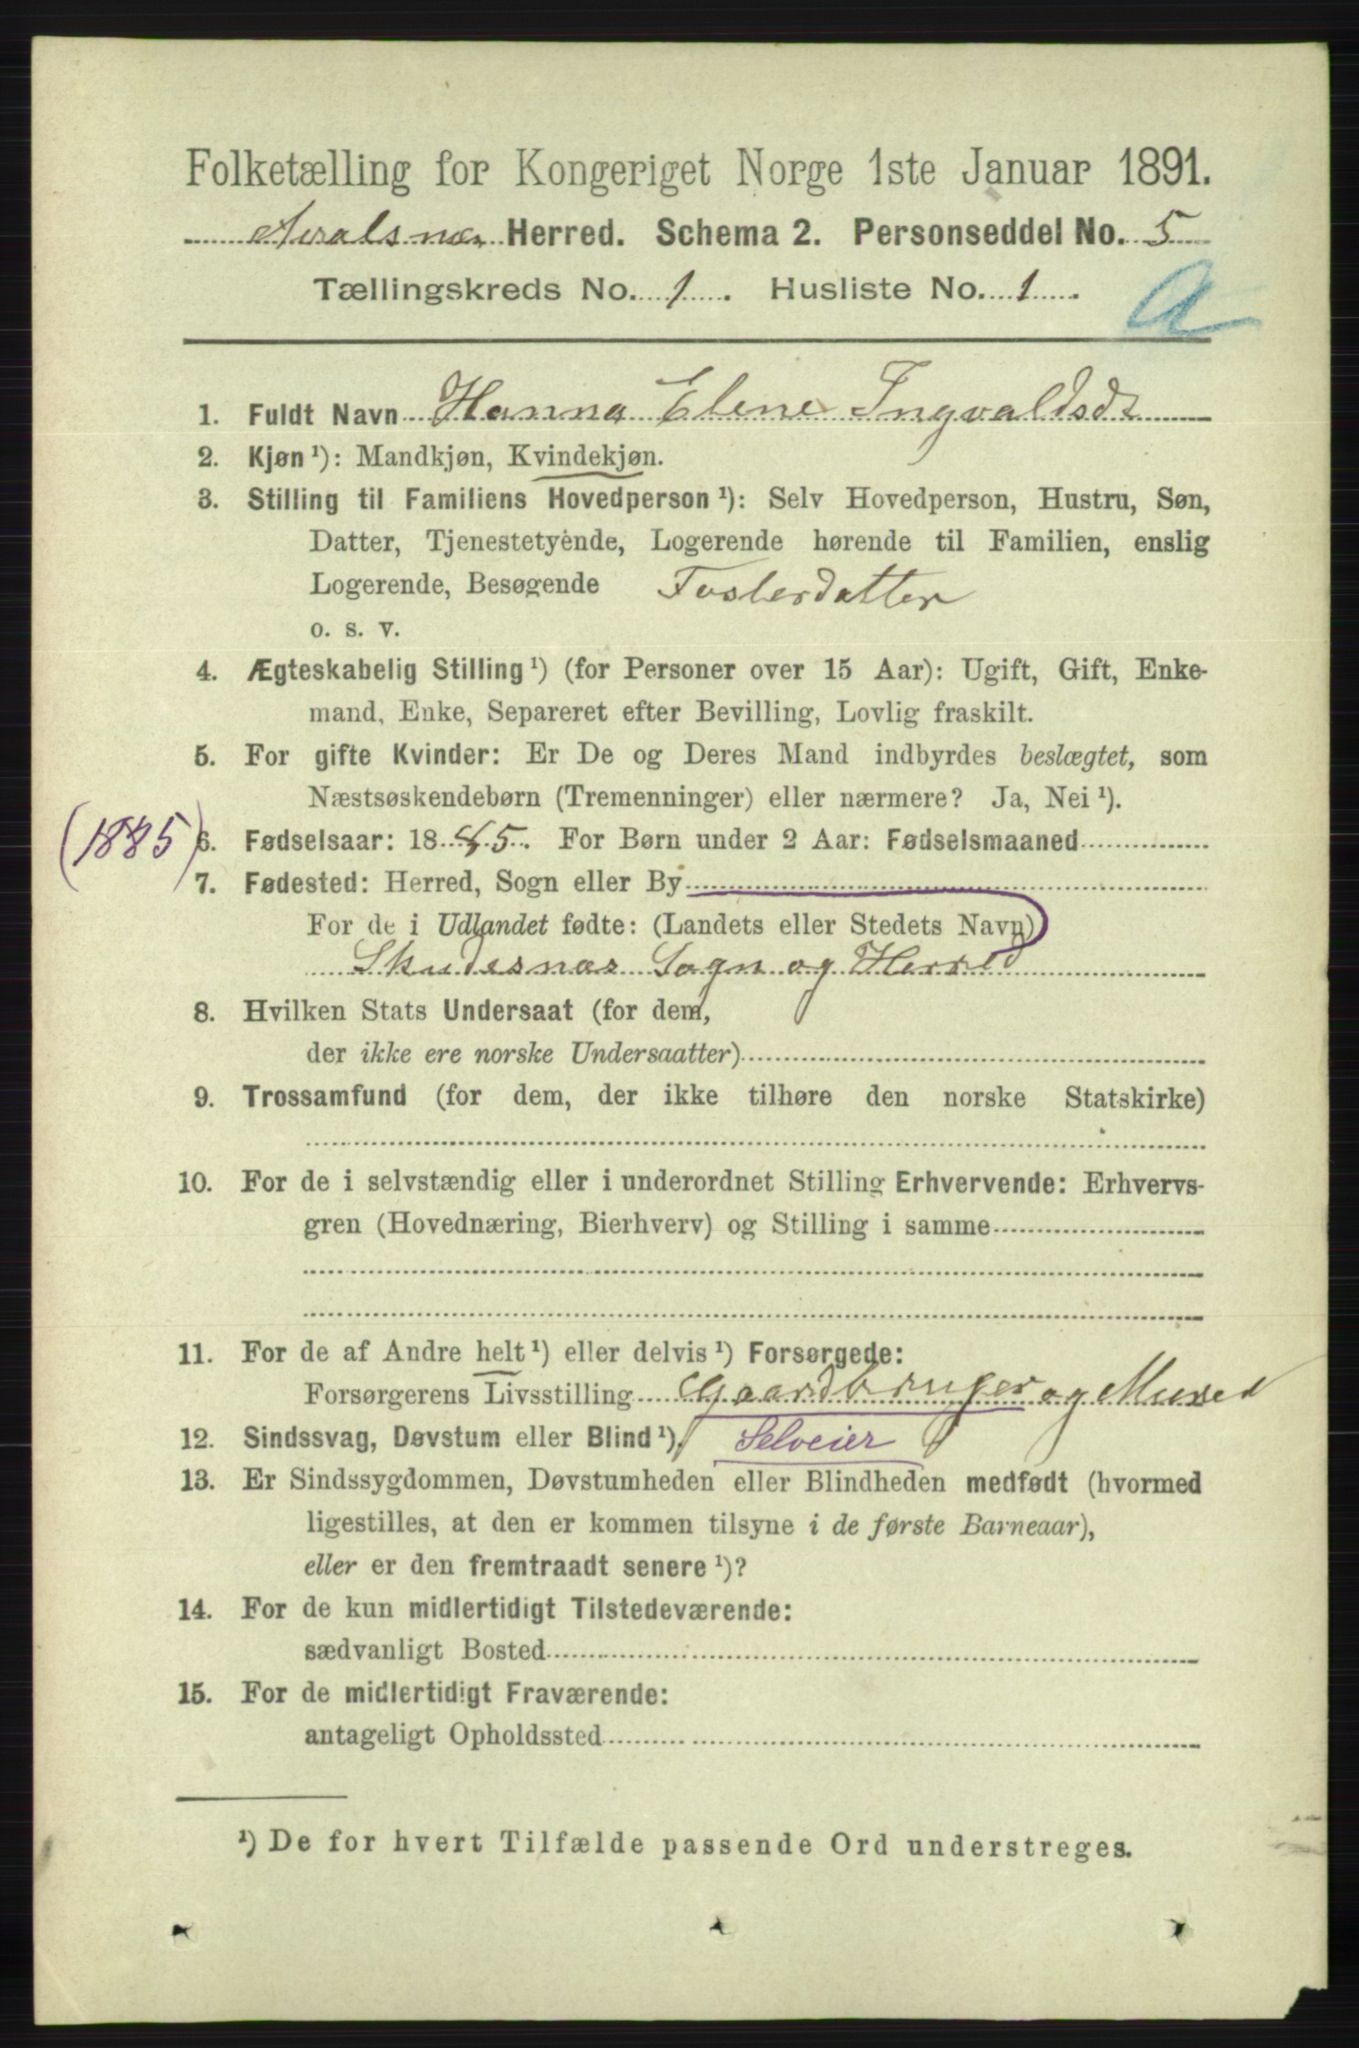 Folketælling for Kongeriget Norge 1ste Januar 1891.
Avalsnæs Herred. Schema 2. Personseddel No. 5
Tællingskreds No. 1. Husliste No. 1.
A
1. Fuldt Navn Hanna Elene Ingvaldsdt
2. Kjøn ¹): Mandkjøn, Kvindekjøn.
3. Stilling til Familiens Hovedperson ¹): Selv Hovedperson, Hustru, Søn,
Datter, Tjenestetyende, Logerende hørende til Familien, enslig
Logerende, Besøgende Fosterdatter
o. s. v.
4. Ægteskabelig Stilling ¹) (for Personer over 15 Aar): Ugift, Gift, Enke-
mand, Enke, Separeret efter Bevilling, Lovlig fraskilt.
5. For gifte Kvinder: Er De og Deres Mand indbyrdes beslægtet, som
Næstsøskendebørn (Tremenninger) eller nærmere? Ja, Nei ¹).
(1885) 6. Fødselsaar: 1885. For Børn under 2 Aar: Fødselsmaaned
7. Fødested: Herred, Sogn eller By
For de i Udlandet fødte: (Landets eller Stedets Navn)
Skudesnæs Sogn og Herred
8. Hvilken Stats Undersaat (for dem,
der ikke ere norske Undersaatter)
9. Trossamfund (for dem, der ikke tilhøre den norske Statskirke)
10. For de i selvstændig eller i underordnet Stilling Erhvervende: Erhvervs-
gren (Hovednæring, Bierhverv) og Stilling i samme
11. For de af Andre helt ¹) eller delvis ¹) Forsørgede:
Forsørgerens Livsstilling Gaardbruger og Mured
12. Sindssvag, Døvstum eller Blind ¹). Selveier
13. Er Sindssygdommen, Døvstumheden eller Blindheden medfødt (hvormed
ligestilles, at den er kommen tilsyne i de første Barneaar),
eller er den fremtraadt senere ¹)?
14. For de kun midlertidigt Tilstedeværende:
sædvanligt Bosted
15. For de midlertidigt Fraværende:
antageligt Opholdssted
¹) De for hvert Tilfælde passende Ord understreges.